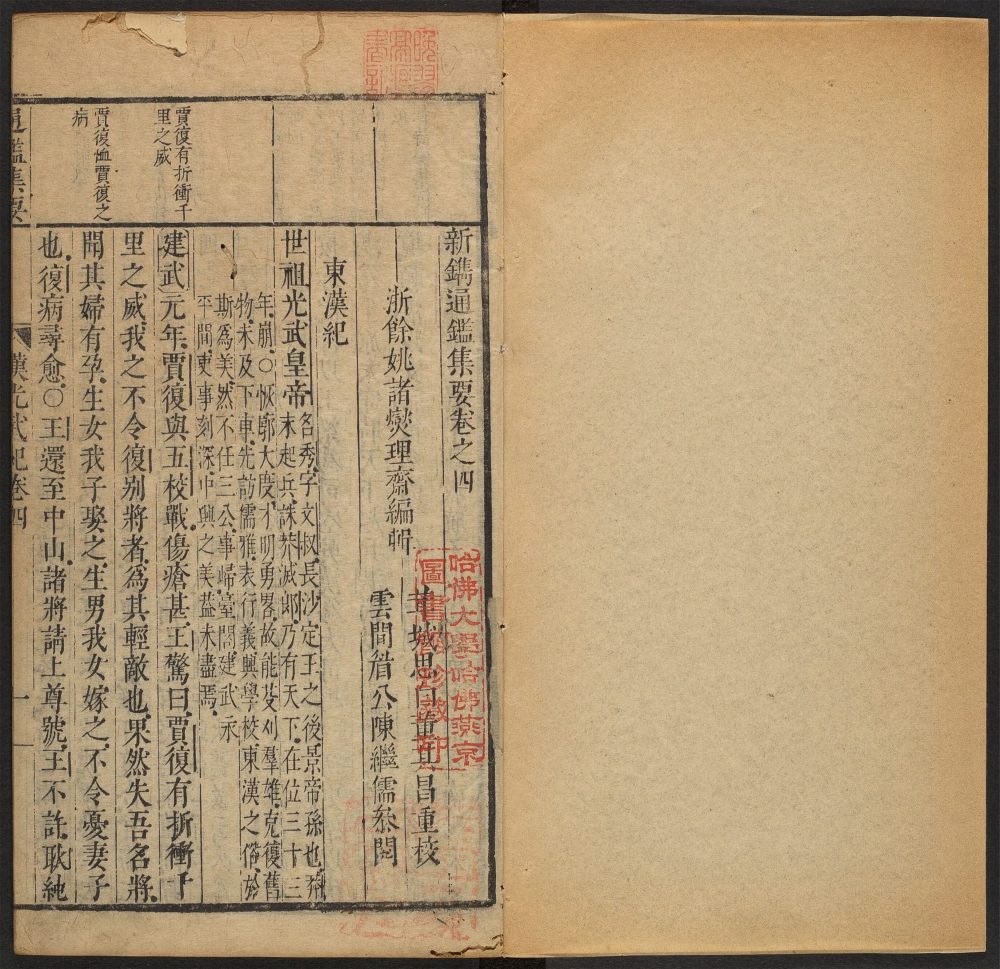 新鐫通鑑集要卷之四
浙餘姚諸燮理齋編輯
華城思白董其昌重校
雲間眉公陳繼儒叅閱
東漢紀
世祖光武皇帝
名秀字文叔長沙定王之後景帝孫也莽
末起兵誅莽滅郎乃有天下在位三十三
年崩○恢廓大度才明勇畧故能芟刈羣雄克復舊
物未及下車先訪儒雅表行義興學校東漢之俗於
斯爲美然不任三公事歸臺閣建武永
平間吏事刻深中興之美葢未盡焉
建武元年賈復與五校戰傷瘡甚王驚曰賈復有折衝千
里之威我之不令復别將者爲其輕敵也果然失吾名將
聞其婦有孕生女我子娶之生男我女嫁之不令憂妻子
也復病尋愈○王還至中山諸將請上尊號王不許耿純
賈復有折衝千
里之威
賈復恤賈復之
病
通鑑集要
漢光武紀卷四
一
哈佛大學哈佛燕京
圖書館珍藏印